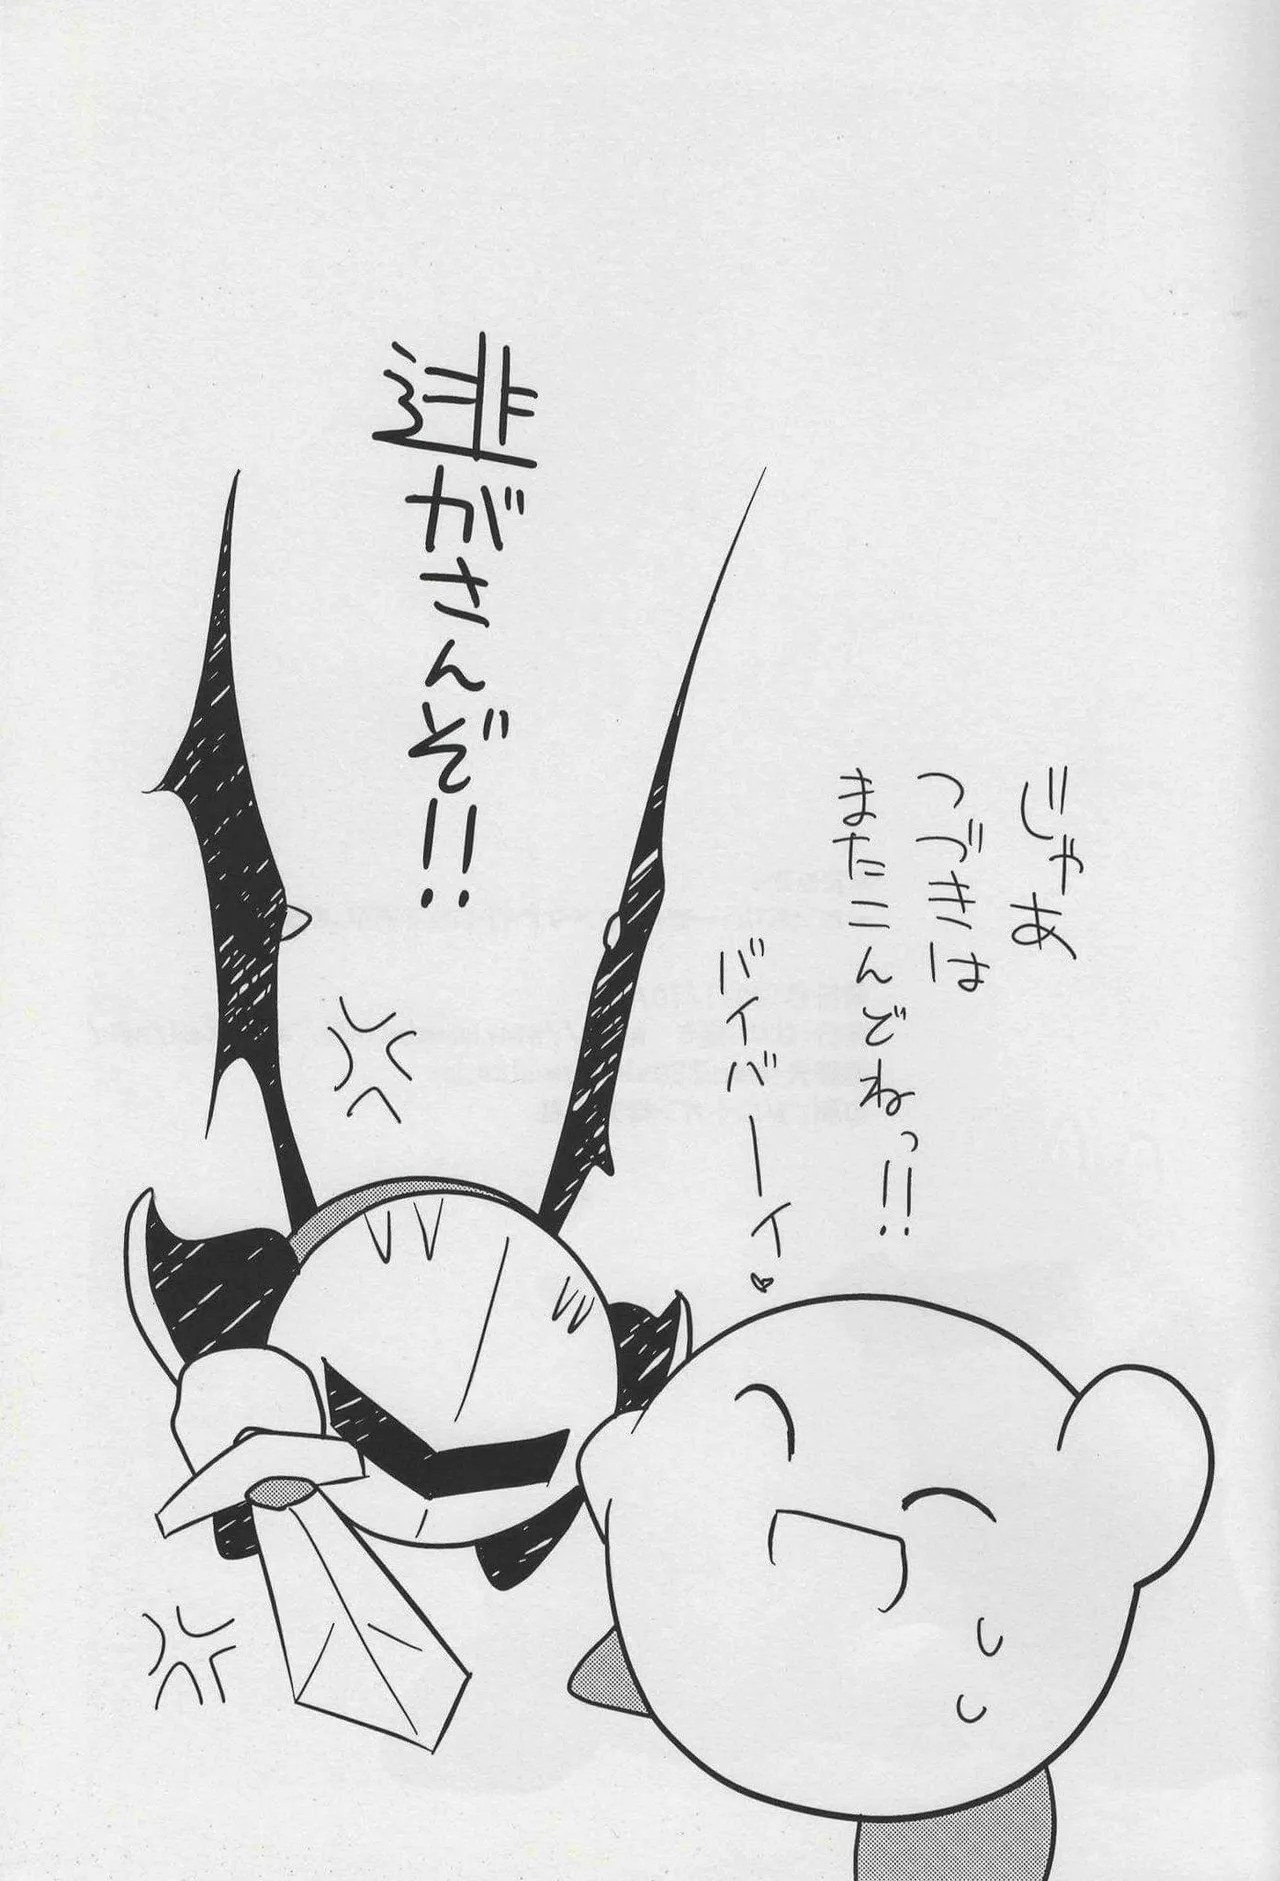 じゃあ
つづきは
またこんどねっ!!
バイバーイ♥
逃がさんぞ!!